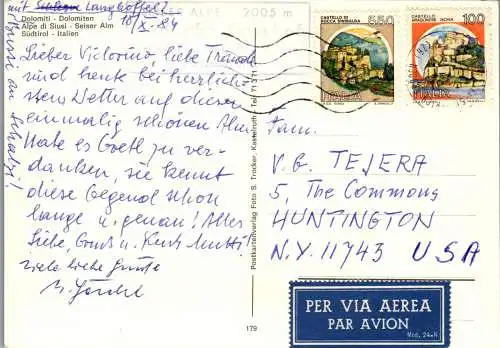 mit Schlern Langkofel
Dolomiti - Dolomiten
Alpe di Siusi - Seiser Alm
Südtirol - Italien
10/X. 84
ALPE 2005 m
Lieber Victorino, liebe Trude
sind heute bei herrlich
stem Wetter auf dieser
einmalig schönen Alm.
Habe es Gretl zu ver-
danken, sie kennt
diese Gegend schon
lange u. genau! Alles
Liebe, Gruss u. Kuss Mutti!
viele liebe Grüße
Grüsse an Schatzi!
Postkartenverlag Foto S. Trocker, Kastelruth, Tel. 71 3 71
179
CASTELLO DI
ROCCA SINIBALDA
550
ITALIA
CASTELLO
ARAGONESE ISCHIA
100
ITALIA
Fam.
V.G. TEJERA
5, The Commons
HUNTINGTON
N.Y. 11743 USA
PER VIA AEREA
PAR AVION
Mod. 24-H